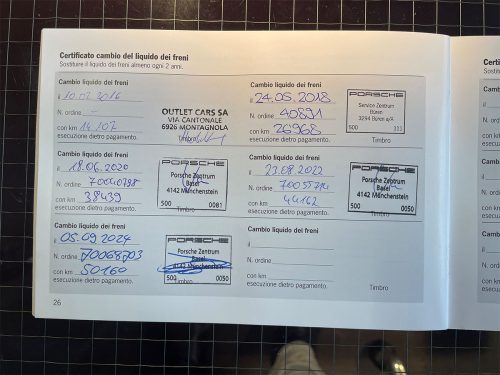 Certificato cambio del liquido dei freni
Sostituire il liquido dei freni almeno ogni 2 anni.
Cambio liquido dei freni
il 10.02.2016
N. ordine -
con km 14.107
esecuzione dietro pagamento.
OUTLET CARS SA
VIA CANTONALE
6926 MONTAGNOLA
Cambio liquido dei freni
il 24.05.2018
N. ordine 40891
con km 26968
esecuzione dietro pagamento.
PORSCHE
Service Zentrum
3294 Büren a/A
500 311
Timbro
Cambio liquido dei freni
il 18.06.2020
N. ordine
con km 38439
esecuzione dietro pagamento.
PORSCHE
Porsche Zentrum
Basel
4142 Münchenstein
500 0081
Timbro
Cambio liquido dei freni
il 23.08.2022
N. ordine
con km 44162
esecuzione dietro pagamento.
PORSCHE
Porsche Zentrum
Basel
4142 Münchenstein
500 0050
Timbro
Cambio liquido dei freni
il 05.09.2024
N. ordine 70068703
con km 50160
esecuzione dietro pagamento.
PORSCHE
Porsche Zentrum
Basel
4142 Münchenstein
500 0050
Timbro
Cambio liquido dei freni
il
N. ordine
con km
esecuzione dietro pagamento.
Timbro
26